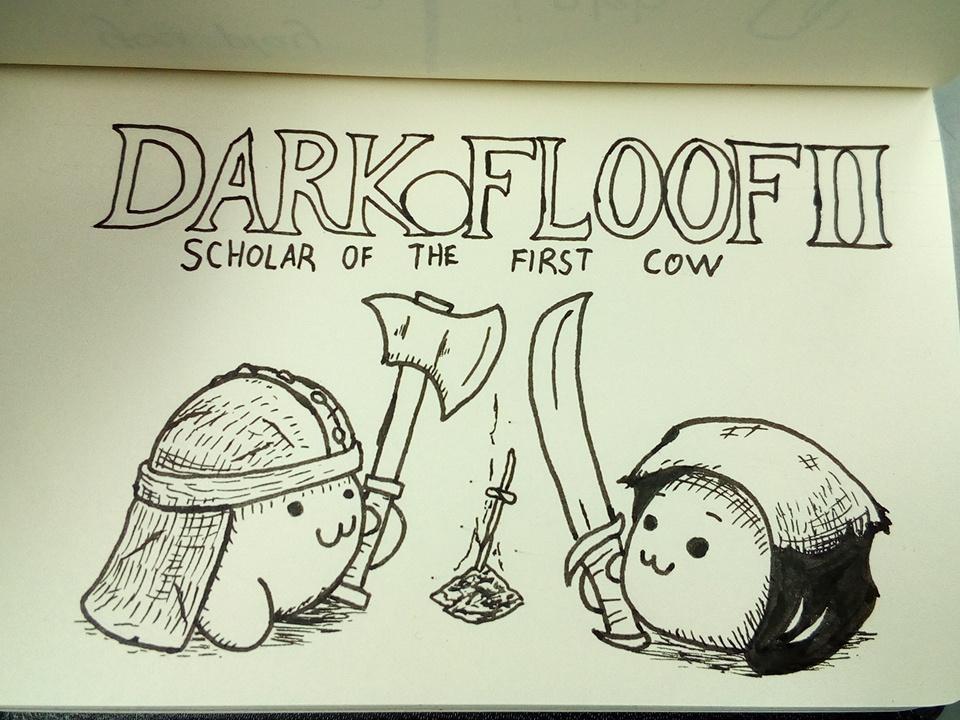 DARK FLOOF II
SCHOLAR OF THE FIRST COW